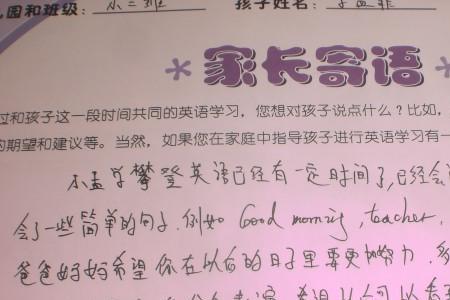 园和班级： 小二班 孩子姓名：
家长寄语
过和孩子这一段时间共同的英语学习，您想对孩子说点什么？比如，
的期望和建议等。当然，如果您在家庭中指导孩子进行英语学习有一
小孟学攀登英语已经有一定时间了,已经会
会了一些简单的句子.例如 Good morning, teacher,
爸爸妈妈希望你在以后的日子里要更加努力.